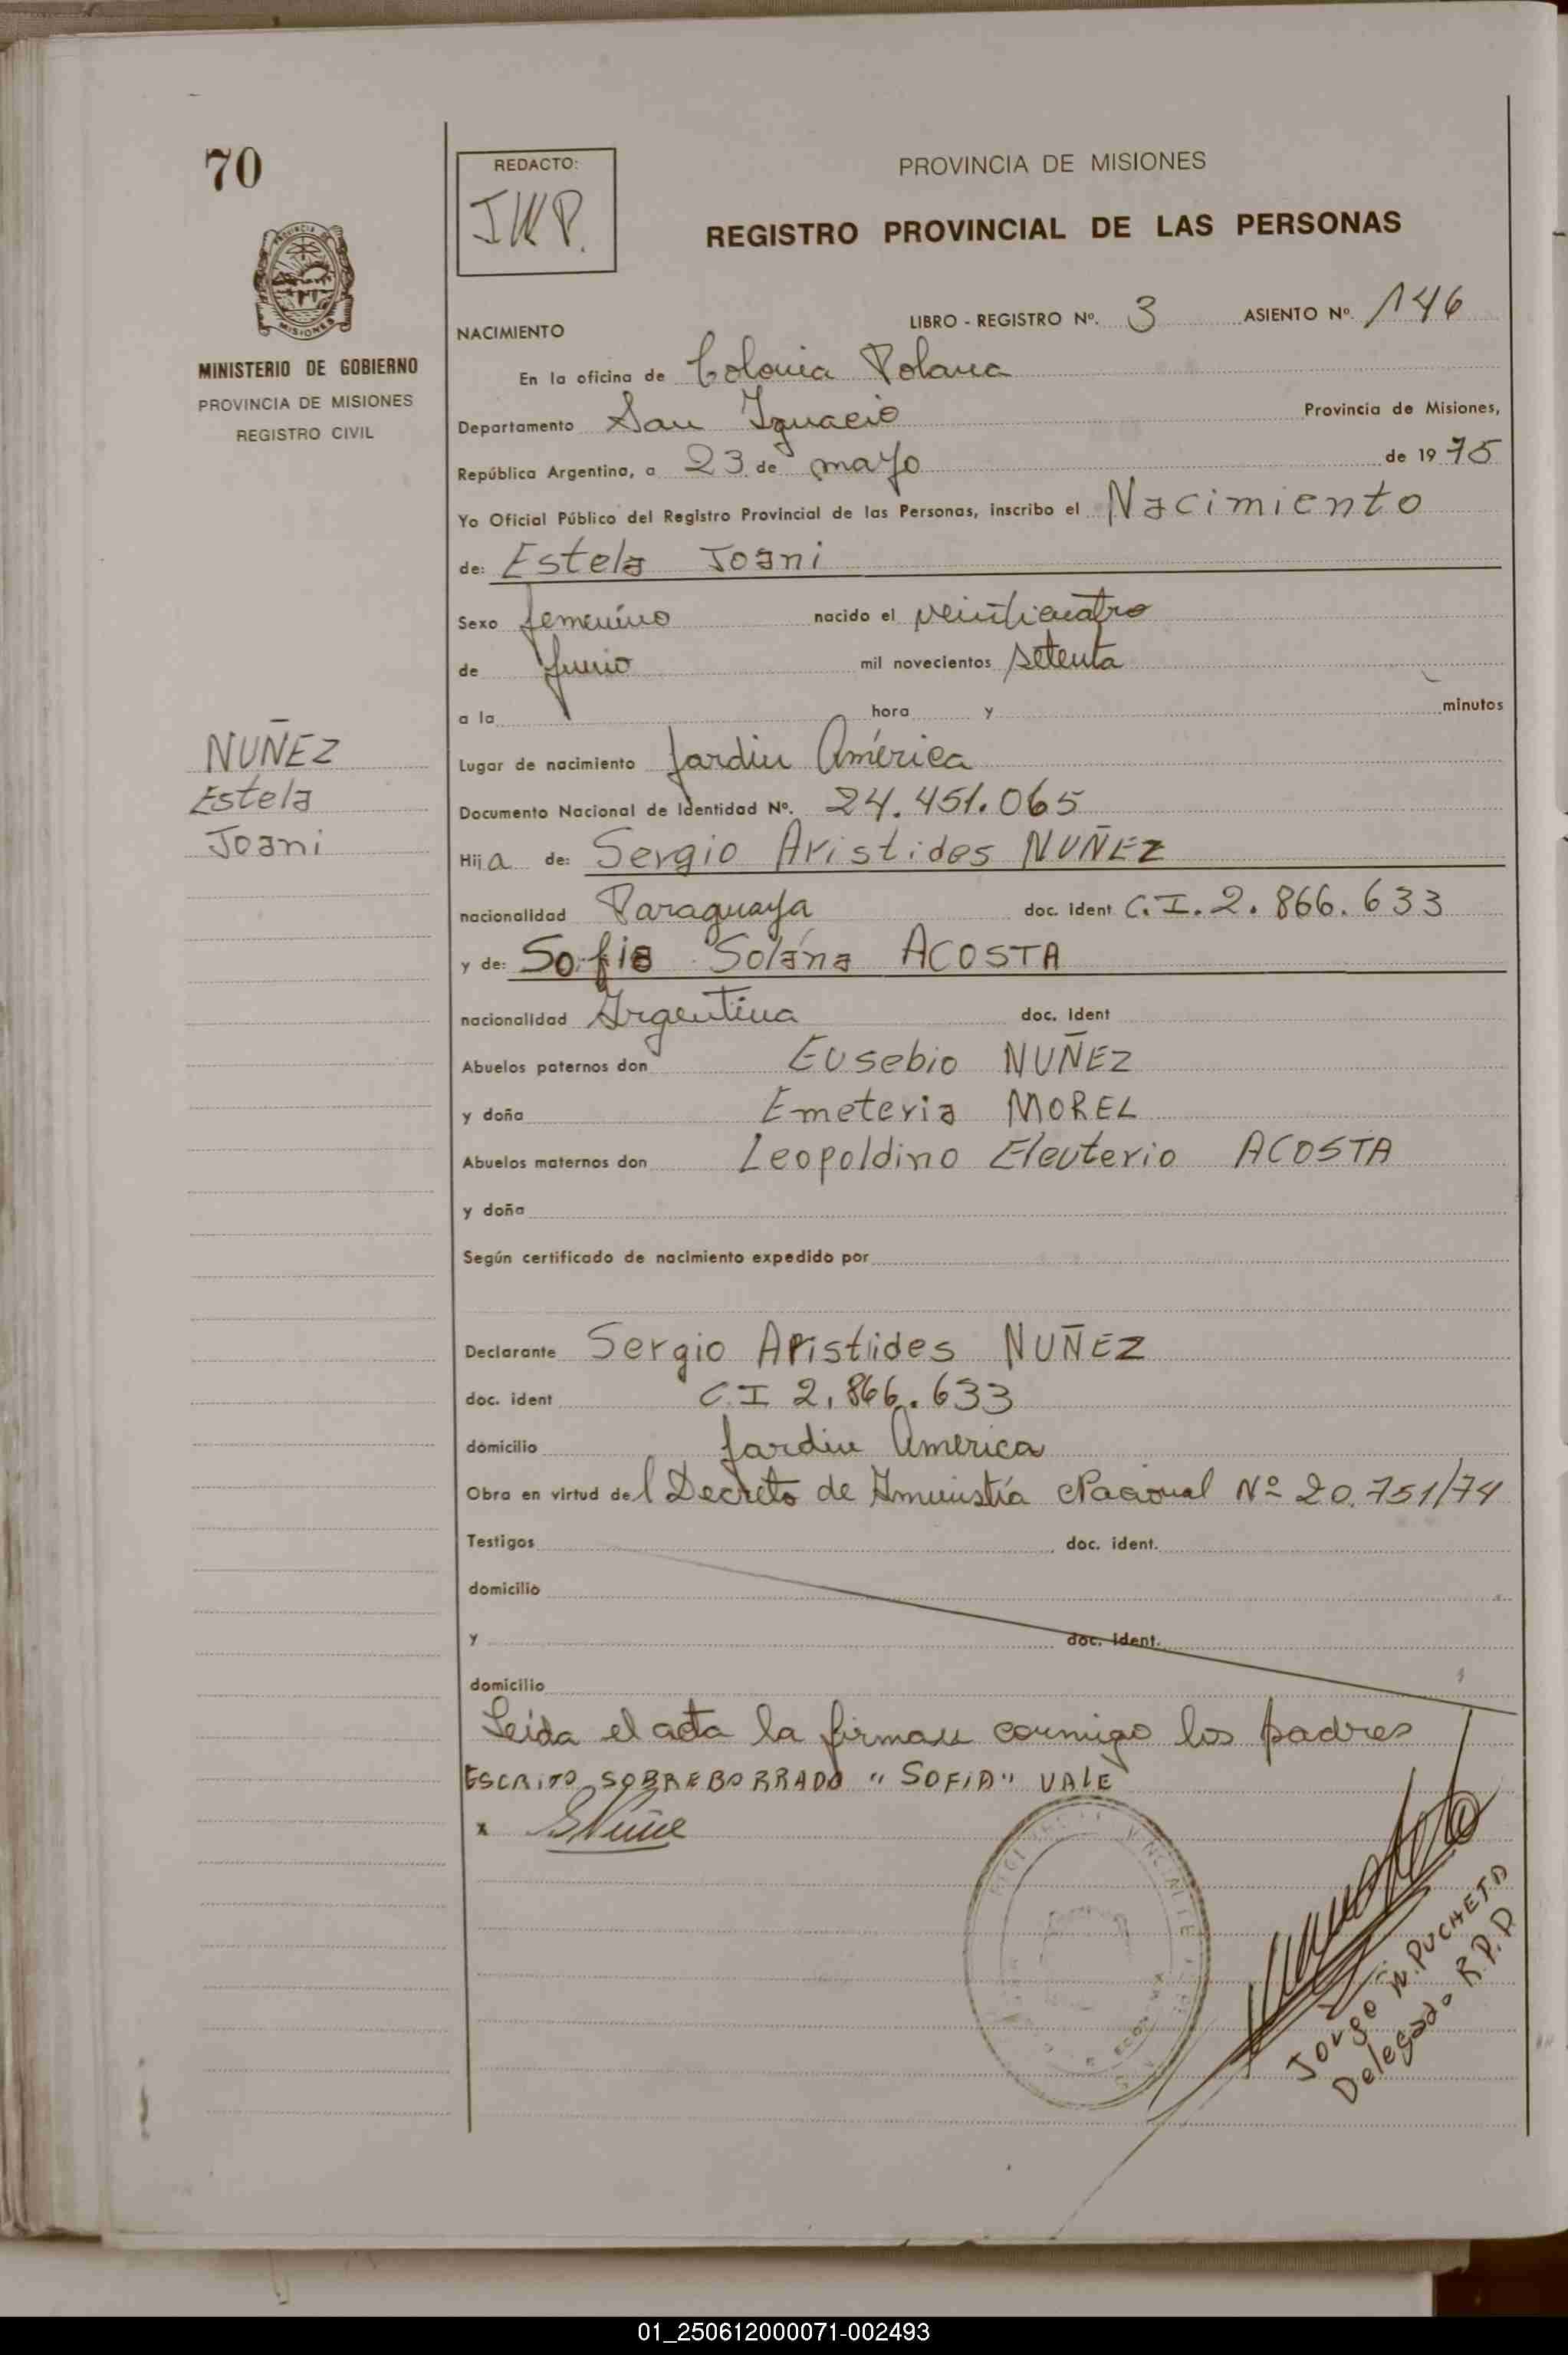 70
PROVINCIA DE MISIONES
MINISTERIO DE GOBIERNO
PROVINCIA DE MISIONES
REGISTRO CIVIL
NUÑEZ
Estela
Joani
REDACTO:
JWP.
PROVINCIA DE MISIONES
REGISTRO PROVINCIAL DE LAS PERSONAS
NACIMIENTO LIBRO - REGISTRO Nº. 3 ASIENTO Nº. 146
En la oficina de Colonia Polana
Departamento San Ignacio Provincia de Misiones,
República Argentina, a 23 de mayo de 19 75
Yo Oficial Público del Registro Provincial de las Personas, inscribo el Nacimiento
de: Estela Joani
Sexo femenino nacido el veinticuatro
de Junio mil novecientos setenta
a la hora y minutos
Lugar de nacimiento Jardin América
Documento Nacional de Identidad Nº. 24.451.065
Hija de: Sergio Aristides NUÑEZ
nacionalidad Paraguaya doc. ident C.I. 2.866.633
y de: Sofia Solána ACOSTA
nacionalidad Argentina doc. ident
Abuelos paternos don Eusebio NUÑEZ
y doña Emeteria MOREL
Abuelos maternos don Leopoldino Eleuterio ACOSTA
y doña
Según certificado de nacimiento expedido por
Declarante Sergio Aristides NUÑEZ
doc. ident C.I 2.866.633
domicilio Jardin America
Obra en virtud del Decreto de Aministía Nacional Nº 20.751/74
Testigos doc. ident.
domicilio
y doc. ident.
domicilio
Leida el acta la firman conmigo los padres
ESCRITO SOBREBORRADO "SOFIA" VALE
x
Jorge W. PUCHETA
Delegado R.P.P
01_250612000071-002493